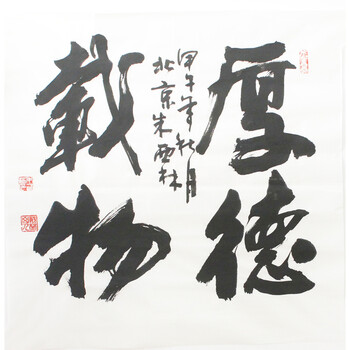 厚德
載物
甲午年秋月
北京朱西林